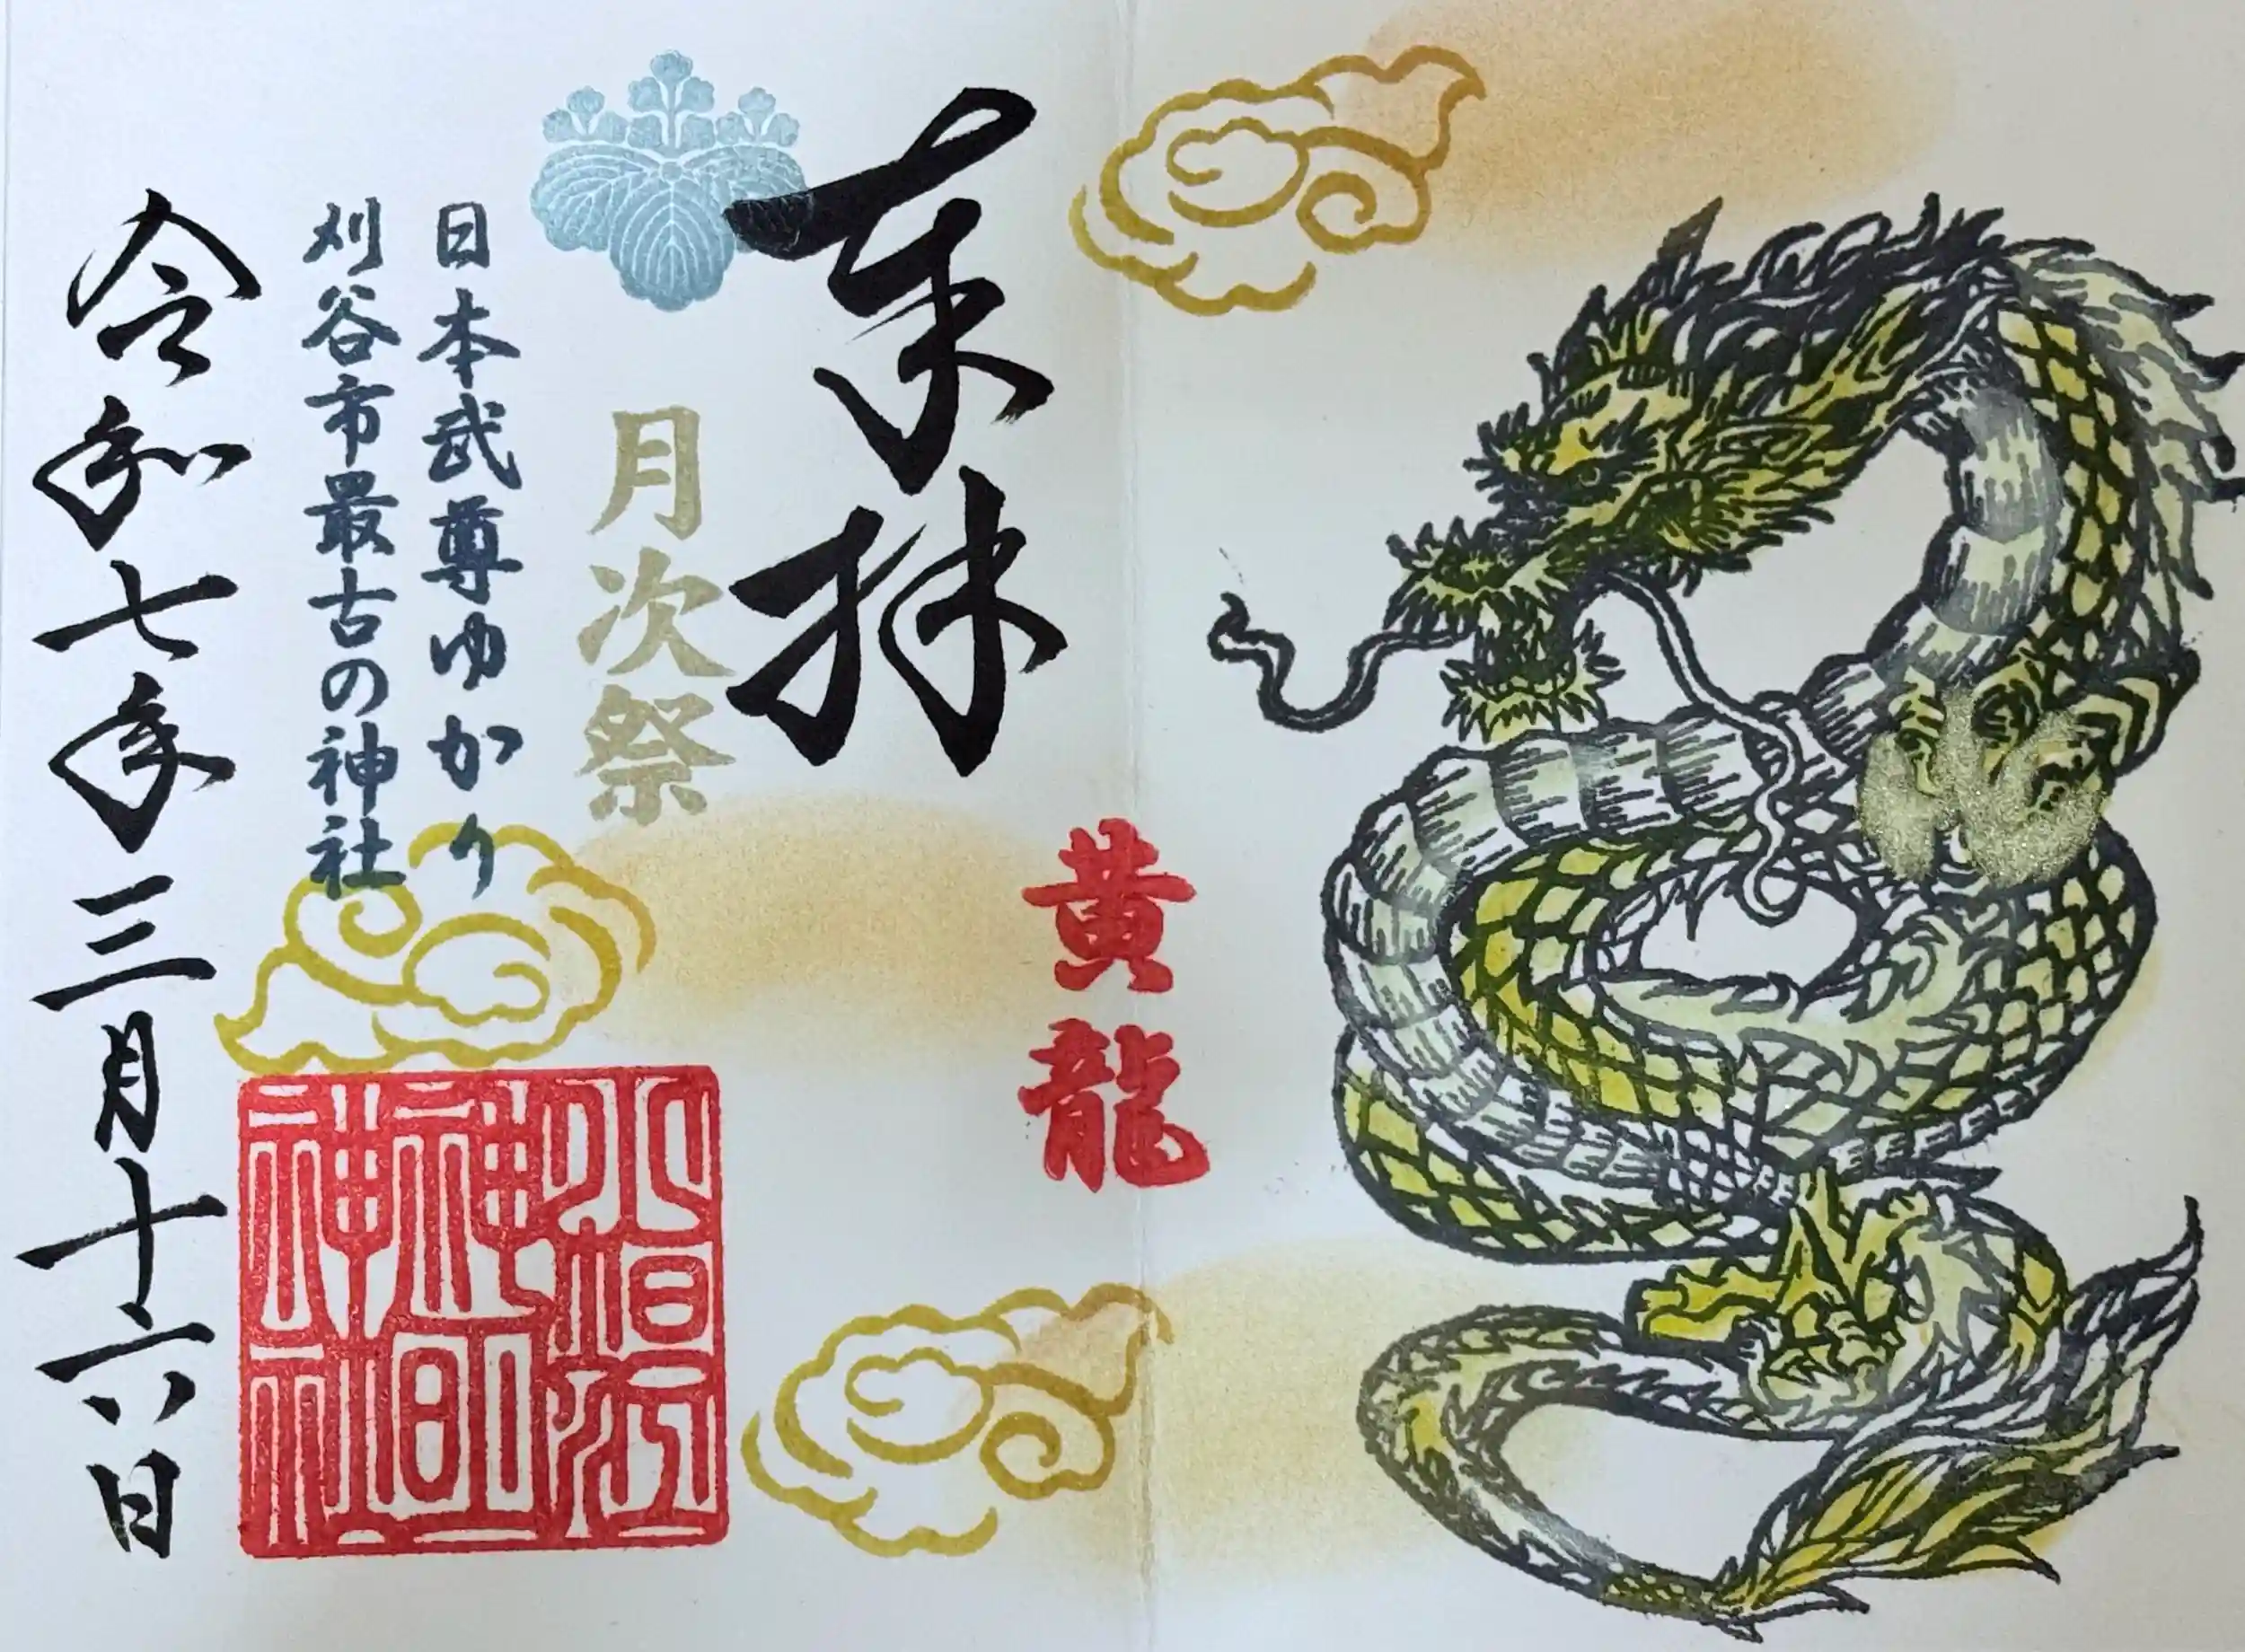 黄龍
奉拝
月次祭
日本武尊ゆかり
刈谷市最古の神社
令和七年三月十六日